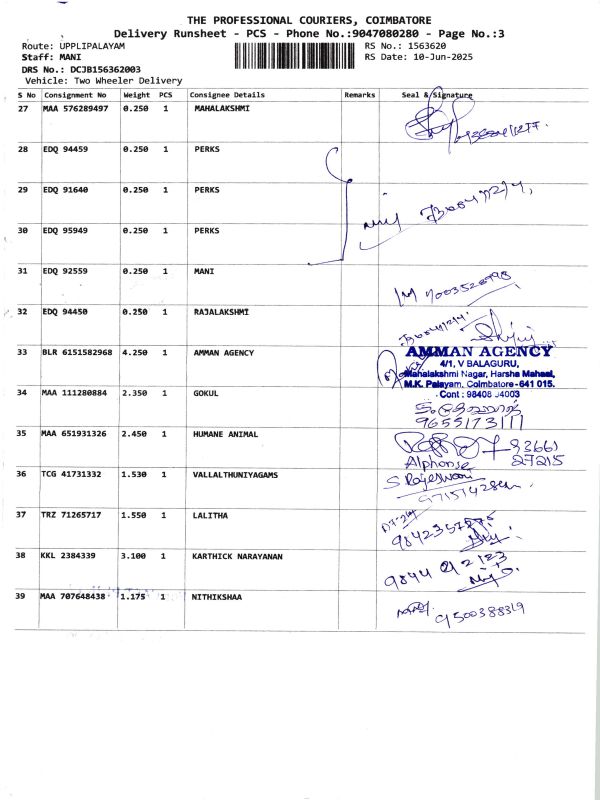 THE PROFESSIONAL COURIERS, COIMBATORE
Delivery Runsheet - PCS - Phone No.:9047080280 - Page No.:3
Route: UPPLIPALAYAM RS No.: 1563620
Staff: MANI RS Date: 10-Jun-2025
DRS No.: DCJB156362003
Vehicle: Two Wheeler Delivery
S No Consignment No Weight PCS Consignee Details Remarks Seal & Signature
27 MAA 576289497 0.250 1 MAHALAKSHMI
28 EDQ 94459 0.250 1 PERKS
29 EDQ 91640 0.250 1 PERKS
30 EDQ 95949 0.250 1 PERKS
31 EDQ 92559 0.250 1 MANI
32 EDQ 94450 0.250 1 RAJALAKSHMI
33 BLR 6151582968 4.250 1 AMMAN AGENCY AMMAN AGENCY
4/1, V BALAGURU,
Mahalakshmi Nagar, Harsha Mahaal,
M.K. Palayam, Coimbatore - 641 015.
34 MAA 111280884 2.350 1 GOKUL
9655173111
35 MAA 651931326 2.450 1 HUMANE ANIMAL 93661
Alphonse 27215
36 TCG 41731332 1.530 1 VALLALTHUNIYAGAMS S Rajeswari
37 TRZ 71265717 1.550 1 LALITHA
38 KKL 2384339 3.100 1 KARTHICK NARAYANAN
39 MAA 707648438 1.175 1 NITHIKSHAA 9500388319